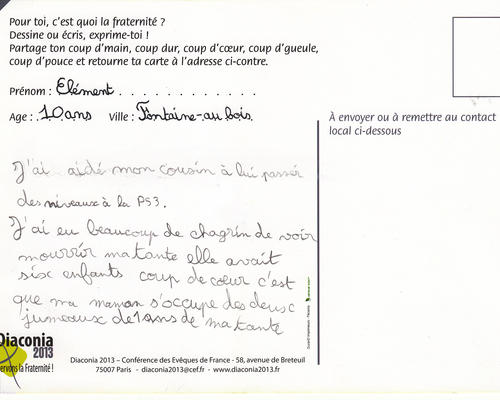 Pour toi, c'est quoi la fraternité ?
Dessine ou écris, exprime-toi !
Partage ton coup d'main, coup dur, coup d'cœur, coup d'gueule,
coup d'pouce et retourne ta carte à l'adresse ci-contre.
Prénom : Clément
Age : 10 ans Ville : Fontaine-au bois
À envoyer ou à remettre au contact
local ci-dessous
J'ai aidé mon cousin à lui passer
des niveaux à la PS3.
J'ai eu beaucoup de chagrin de voir
mourrir ma tante elle avait
six enfants coup de cœur c'est
que ma maman s'occupe des deusc
jumeaux de 1 ans de ma tante
Diaconia
2013
ervons la Fraternité !
Diaconia 2013 – Conférence des Evêques de France - 58, avenue de Breteuil
75007 Paris - diaconia2013@cef.fr - www.diaconia2013.fr